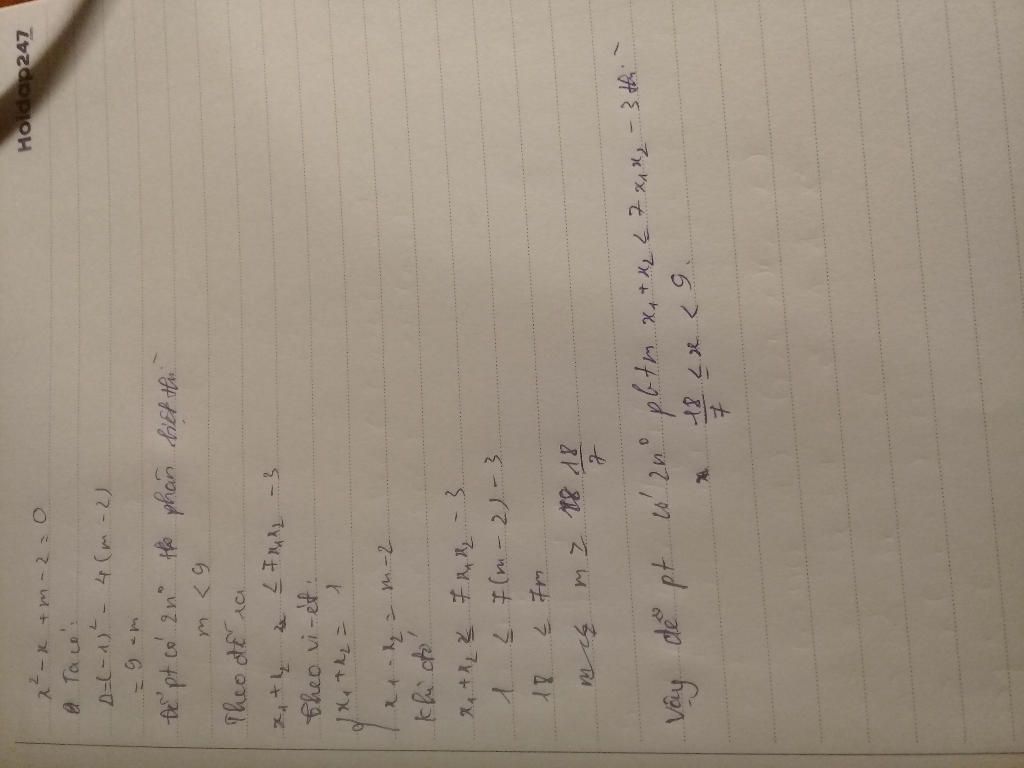 Hoidap247
x² - x + m - 2 = 0
Ta có:
Δ = (-1)² - 4(m - 2)
= 9 - m
Để pt có 2n⁰ phân biệt thì
m < 9
Theo đề ra
x₁ + x₂ ≤ 7x₁x₂ - 3
Theo vi-ét.
{ x₁ + x₂ = 1
x₁ . x₂ = m - 2
Khi đó
x₁ + x₂ ≤ 7x₁x₂ - 3
1 ≤ 7(m - 2) - 3
18 ≤ 7m
m ≥ 18/7
Vậy để pt có 2n⁰ pb tm x₁ + x₂ ≤ 7x₁x₂ - 3 thì
18/7 ≤ x < 9.